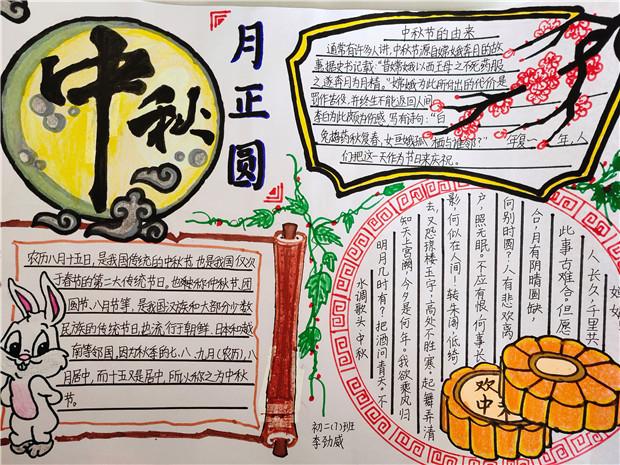 中秋
月正圆
中秋节的由来
通常有许多人讲,中秋节源自嫦娥奔月的故
事据史书记载:"昔嫦娥以西王母之不死药服
之遂奔月为月精。"嫦娥为此所付出的代价是
罚作苦役,并终生不能返回人间
李白为此颇为伤感,写有诗句:"白
兔捣药秋复春,女亘娥孤栖与谁邻?"年复一年,人
们把这一天作为节日来庆祝。
农历八月十五日,是我国传统的中秋节,也是我国仅次
于春节的第二大传统节日,也被称中秋节,团
圆节、八月节等,是我国汉族和大部分少数
民族的传统节日,也流行于朝鲜,日本和越
南等邻国,因为秋季的七、八、九月(农历),八
月居中,而十五又是居中,所以称之为中秋
节。
水调歌头·中秋
明月几时有?把酒问青天。不
知天上宫阙,今夕是何年。我欲乘风归
去,又恐琼楼玉宇,高处不胜寒。起舞弄清
影,何似在人间!转朱阁,低绮
户,照无眠。不应有恨,何事长
向别时圆?人有悲欢离
合,月有阴晴圆缺,
此事古难全。但愿
人长久,千里共
欢
中
初二(7)班
李劲威